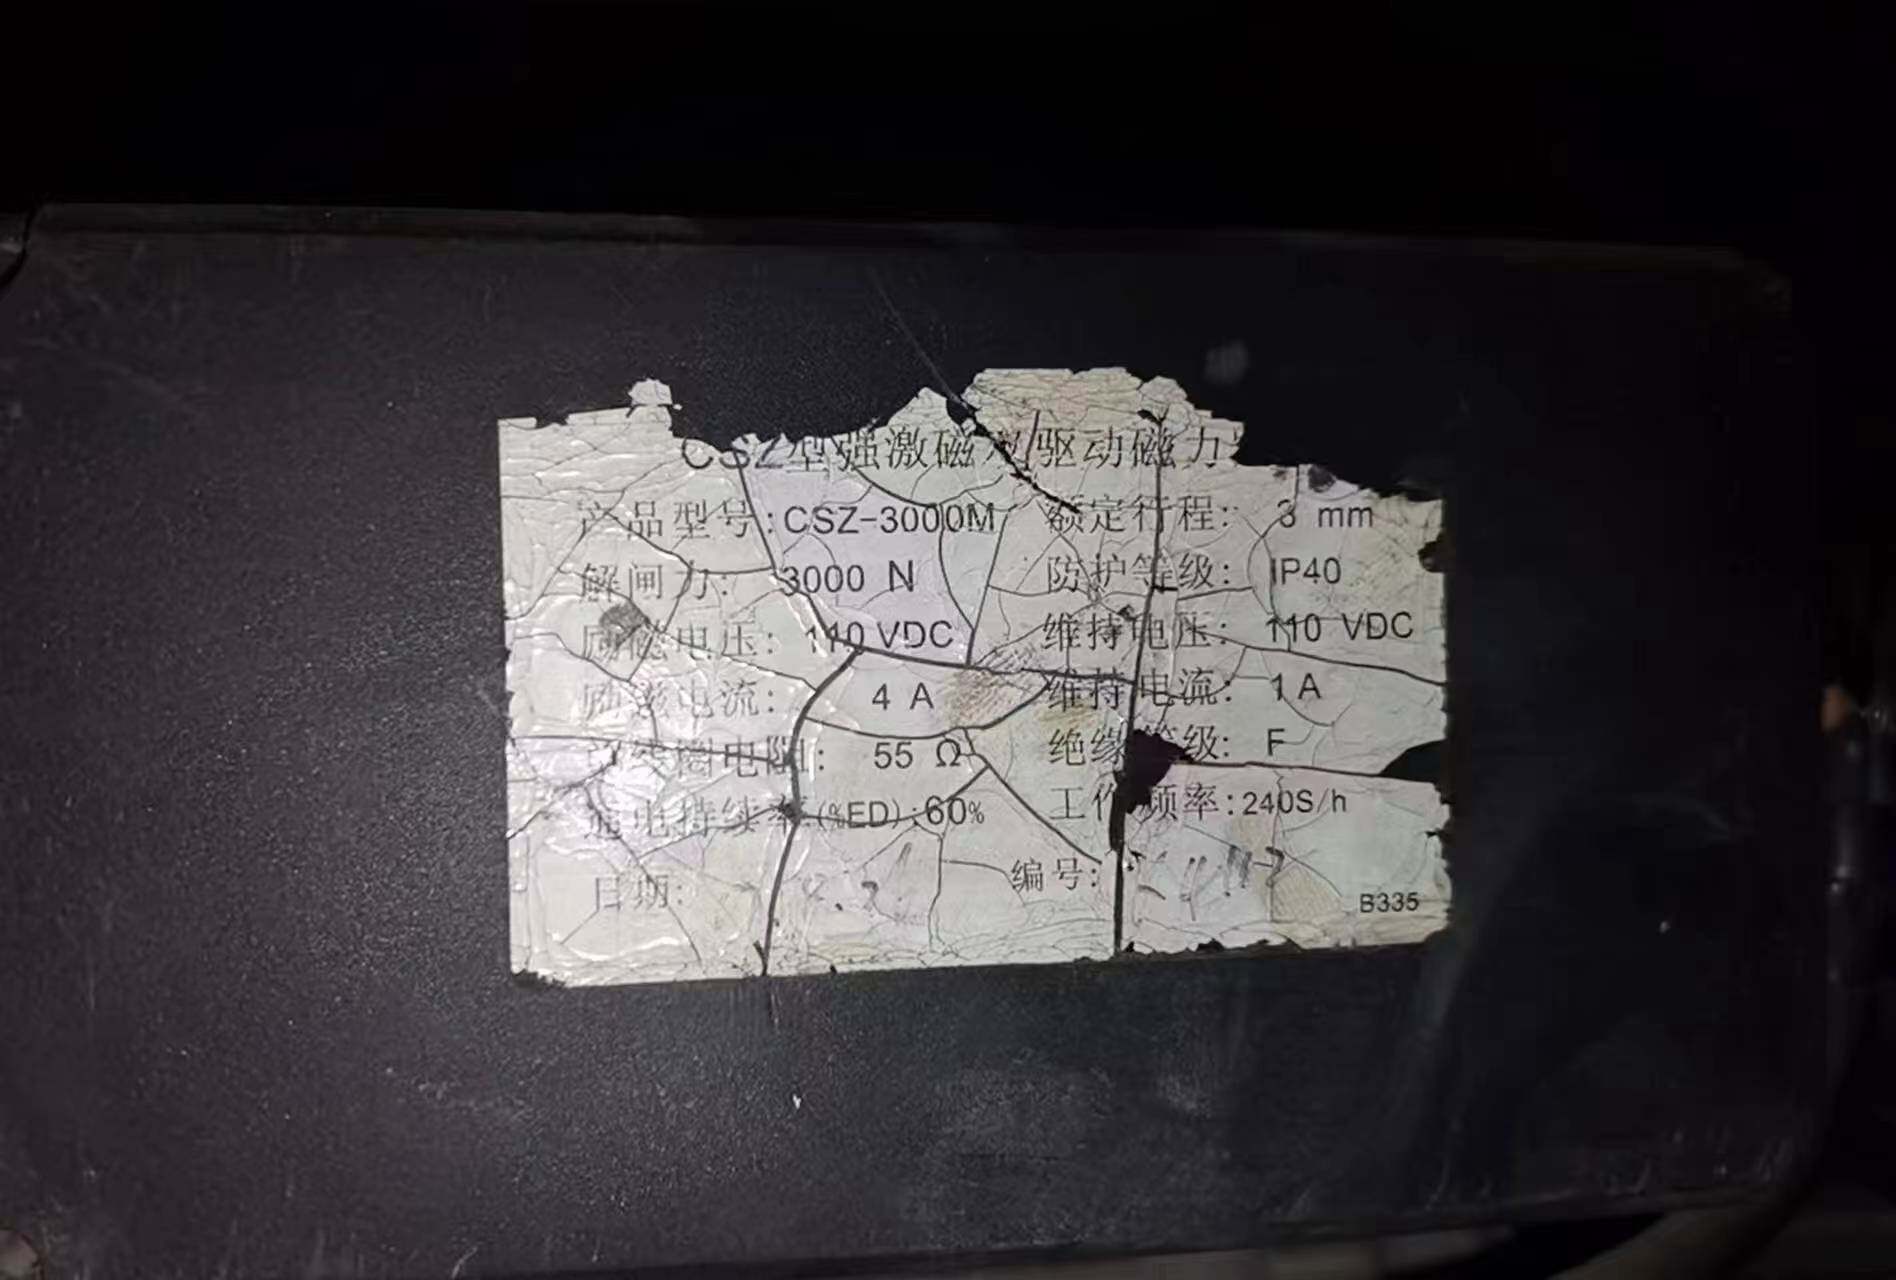 CSZ型强激磁双驱动磁力
产品型号:CSZ-3000M 额定行程: 3 mm
解闸力: 3000 N 防护等级: IP40
励磁电压: 110 VDC 维持电压: 110 VDC
励磁电流: 4 A 维持电流: 1 A
线圈电阻: 55 Ω 绝缘等级: F
通电持续率(%ED):60% 工作频率:240S/h
日期: 编号:
B335